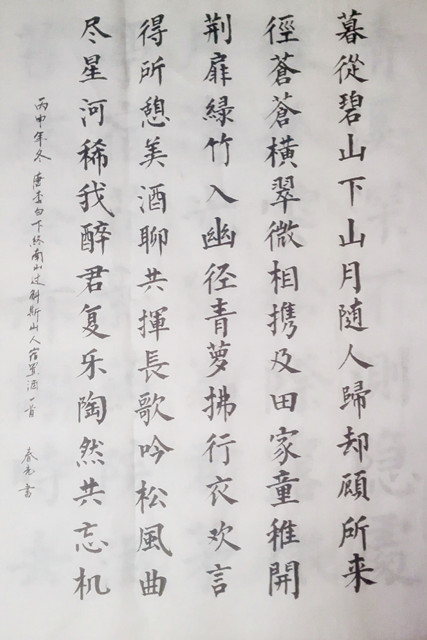 暮從碧山下山月随人歸却顧所来
徑蒼蒼橫翠微相携及田家童稚開
荆扉緑竹入幽径青萝拂行衣欢言
得所憩美酒聊共揮長歌吟松風曲
尽星河稀我醉君复乐陶然共忘机
丙申年冬 唐李白下终南山过斛斯山人宿置酒一首 春 書